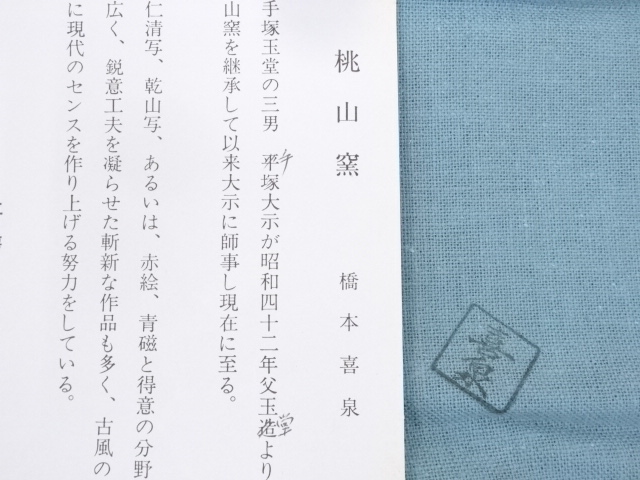 桃山窯
橋本喜泉
手塚玉堂の三男 平塚大示が昭和四十二年父玉造より
手
堂
山窯を継承して以来大示に師事し現在に至る。
仁清写、乾山写、あるいは、赤絵、青磁と得意の分野
広く、鋭意工夫を凝らせた斬新な作品も多く、古風の
に現代のセンスを作り上げる努力をしている。
喜泉